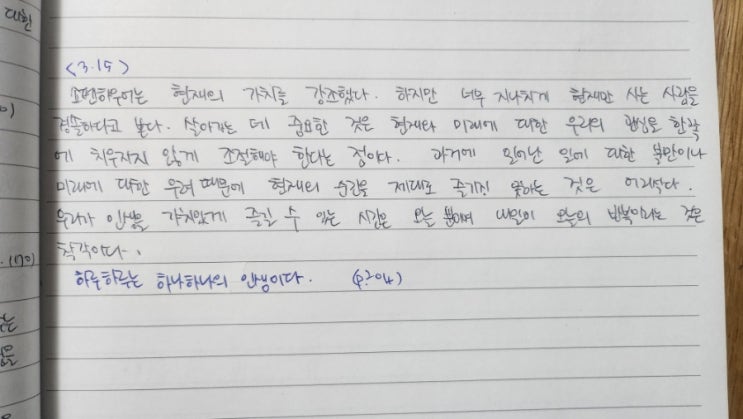 대한
<3.15>
쇼펜하우어는 현재의 가치를 강조했다. 하지만 너무 지나치게 현재만 사는 사람을
경솔하다고 봤다. 살아가는 데 중요한 것은 현재와 미래에 대한 우리의 관심을 한쪽
에 치우치지 않게 조절해야 한다는 점이다. 과거에 일어난 일에 대한 불만이나
미래에 대한 우려 때문에 현재의 순간을 제대로 즐기진 못하는 것은 어리석다.
우리가 인생을 가치있게 즐길 수 있는 시간은 오늘 뿐이며 내일이 오늘의 반복이라는 것은
착각이다.
하루하루는 하나하나의 인생이다. (p204)